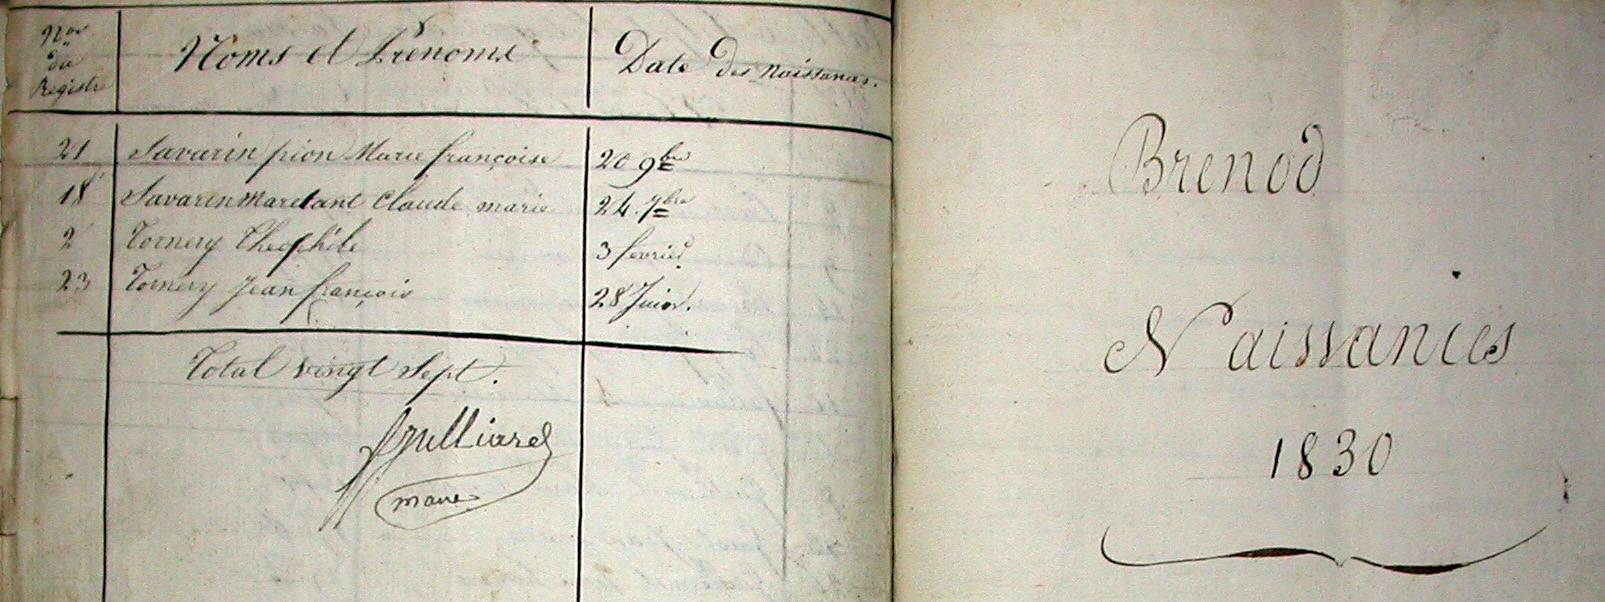 Nos
du
Registre
Noms et Prénoms
Date des Naissances.
21 Savarin pion Marie françoise 20 9bre
18 Savarin Maretant Claude marie 24 7bre
2 Tornery Theophile 3 fevrier
23 Tornery Jean françois 28 Juin.
Total vingt sept.
maire
Brenod
Naissances
1830